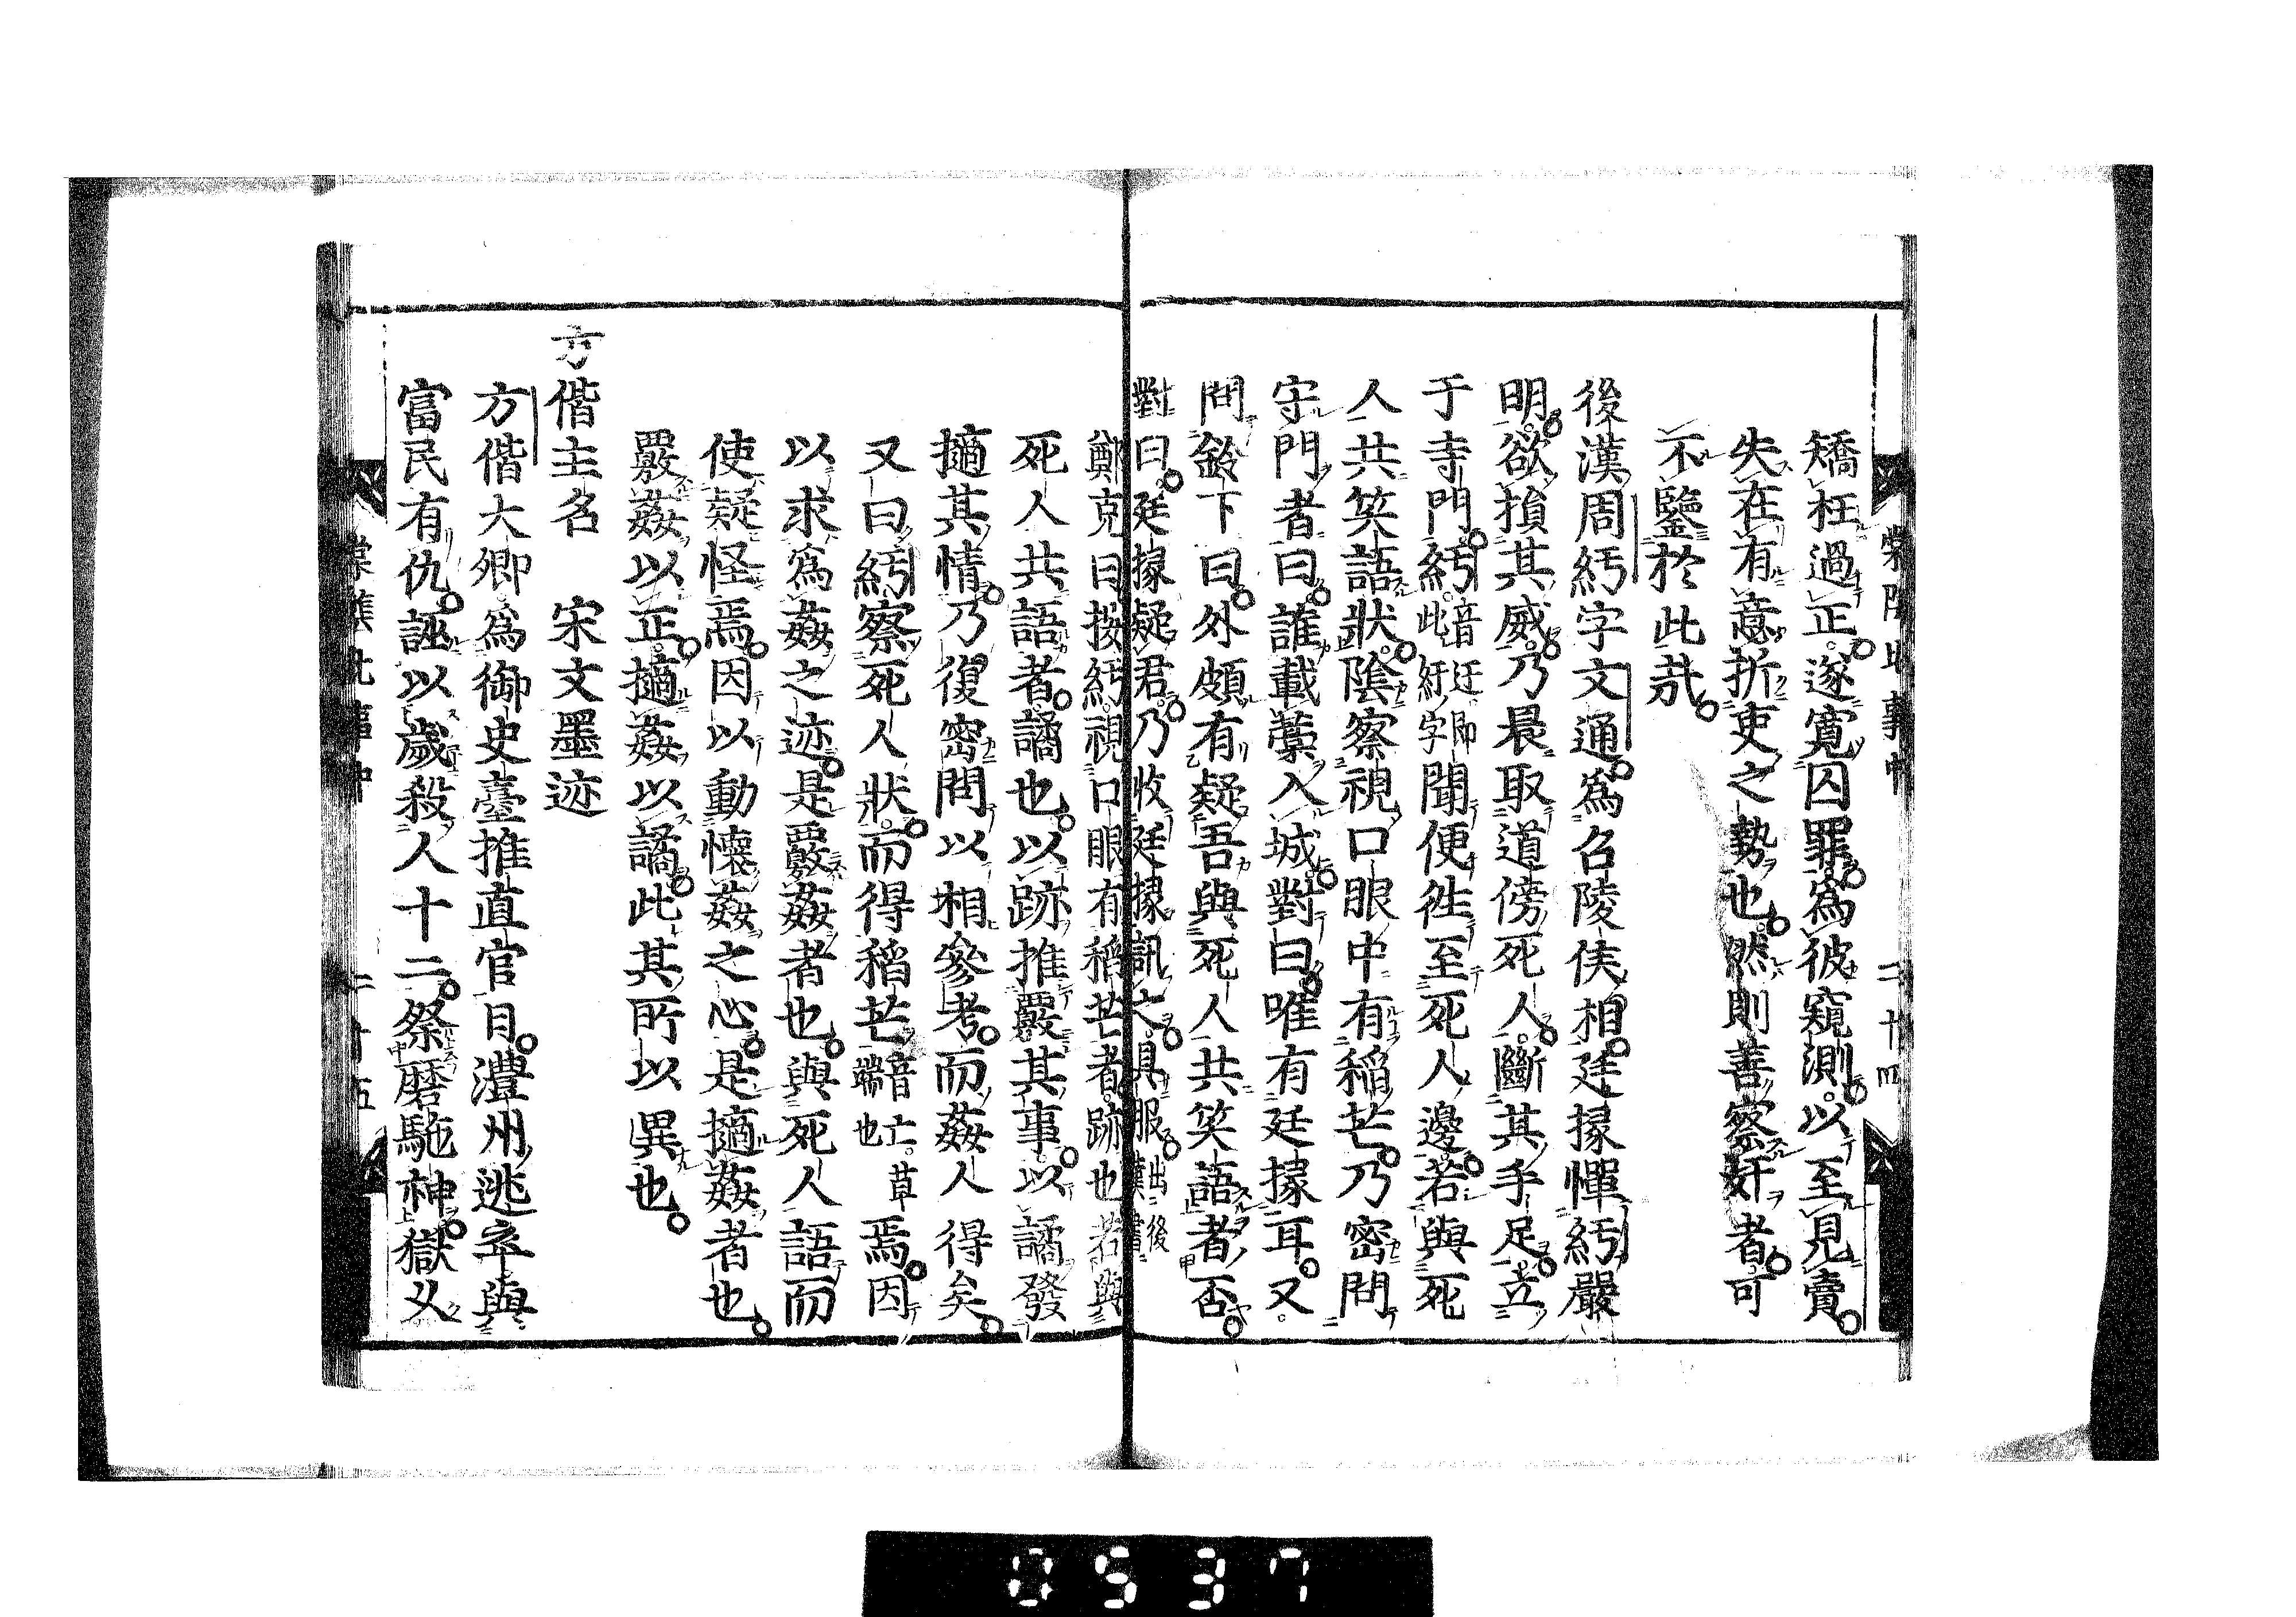 棠陰比事中　二十四
矯枉過正遂寬囚罪爲彼窺測以至見賣
失在有意折吏之勢也然則善察奸者可
不鑒於此哉
後漢周紆字文通爲召陵侯相廷掾憚紆嚴
明欲損其威乃晨取道傍死人斷其手足立
于寺門紆音迂即此紆字聞便徃至死人邊若與死
人共笑語狀陰察視口眼中有稻芒乃密問
守門者曰誰載藁入城對曰唯有廷掾耳又
問鈴下曰外頗有疑吾與死人共笑語者否
對曰廷掾疑君乃收廷掾訊之具服出後漢書
鄭克曰按紆視口眼有稻芒者跡也若與
死人共語者譎也以跡推覈其事以譎發
擿其情乃復密問以相參考而姦人得矣
又曰紆察死人狀而得稻芒音亡草端也焉因
以求爲姦之迹是覈姦者也與死人語而
使疑怪焉因以動懷姦之心是擿姦者也
覈姦以正擿姦以譎此其所以異也
方偕主名　宋文墨迹
方偕大卿爲御史臺推直官日澧州逃卒與
富民有仇誣以歲殺人十二祭磨駞神獄久
棠陰比事中　二十五
0537